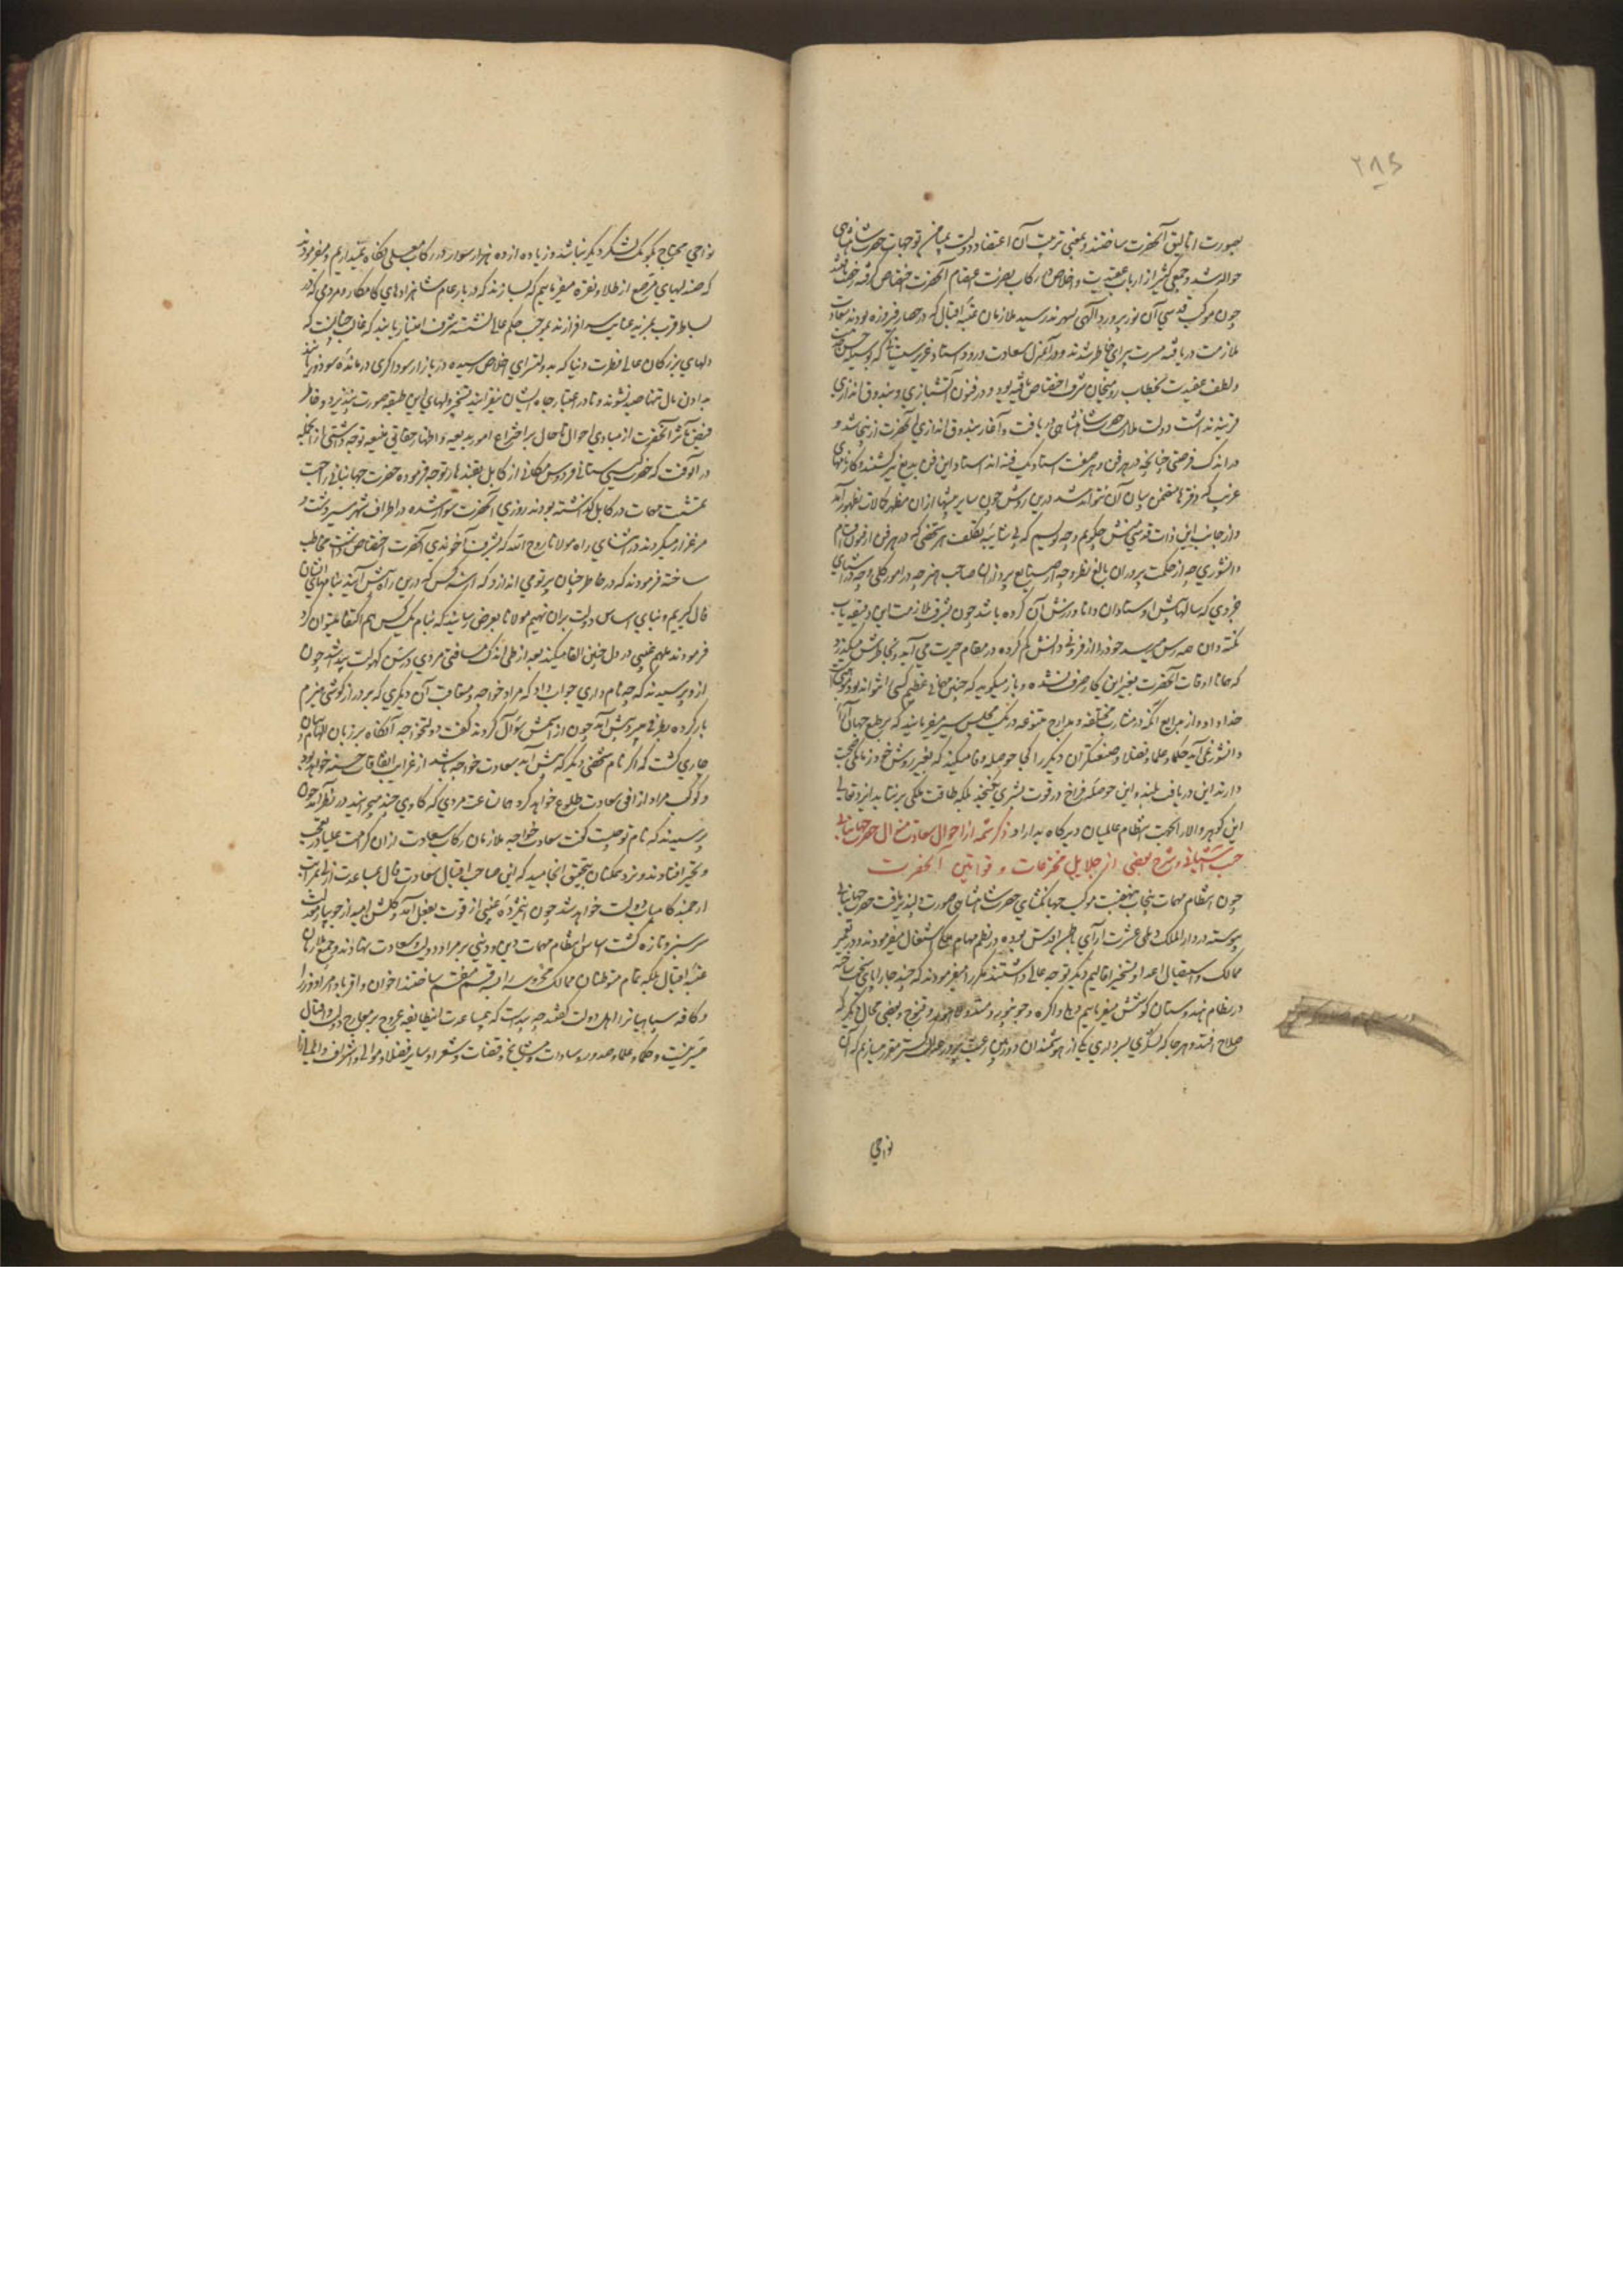 ۲۸۵
بصورت اتالیق آنحضرت ساختند و بمعنی تربیت آن اعتضاد دولت بمیامن توجهات حضرت شاهنشاهی
حواله شد و جمعی کثیر از ارباب عقیدت و اخلاص در رکاب نصرت اعتصام آنحضرت اختصاص گرفته رخصت یافتند
چون موکب قدسی آن نور پرورد الهی بسهرند رسید ملازمان عتبه اقبال که در حصار فیروزه بودند سعادت
ملازمت دریافته مسرت پیرای خاطر شدند و در آن منزل سعادت ورود استاد عزیز سیستانی که بوسیله حسن خدمت
و لطف عقیدت بخطاب رومیخان شرف اختصاص یافته بود و در فنون آتشبازی و بندوق اندازی
قرینه نداشت دولت ملازمت حضرت شاهنشاهی دریافت و آغاز بندوق اندازی آنحضرت ازینجا شد و
در اندک فرصتی چنانچه در هر فن و هر صنعت استاد یک فنه اند استاد این فن بدیع نیز گشتند و کارنامهای
غریب که دفترها متضمن بیان آن نتواند شد درین روش چون سایر پیشها از آن مظهر کمالات بظهور آمد
و از جانب این ذات قدسی منش چگویم و چه نویسم که بی شائبه تکلف هر شخصی که در هر فن از فنون اقسام
دانشوری چه از حکمت پروران بالغ نظر و چه از صنایع پردازان صاحب هنر چه در امور کلی و چه در اشیای
جزوی که سالها پیش اوستادان دانا ورزش آن کرده باشد چون بشرف ملازمت این دقیقه یاب
نکته دان همه رس میرسد خود را از فزونی دانش گم کرده در مقام حیرت می آید و بخاطرش میگذرد
که همانا اوقات آنحضرت بغیر این کار صرف نشده و باز میگوید که چنین مهارتی عظیم کسبی نتواند بود موهبت
خداداد و از بدایع آنکه در مشارب مختلفه و مدارج متنوعه در یک مجلس سیر میفرمایند که بر طبع جهان آرا
دانشوری آید حکما و علما و فضلا و صنعتگران دیگر را کجا حوصله وفا میکند که بغیر روش خود زمانی صحبت
دارند این دریافت بلند و این حوصله فراخ در قوت بشری نگنجد بلکه طاقت ملکی برنتابد ایزد تعالی
این گوهر والا را بجهت انتظام عالمیان دیرگاه بداراد ذکر شمه از احوال سعادت منوال حضرت جهانبانی
جنت آشیانی و شرح بعضی از جلایل مخترعات و قوانین آنحضرت
چون انتظام مهمات پنجاب بنهضت موکب جهانگشای حضرت شاهنشاهی صورت دلپذیر یافت حضرت جهانبانی
پیوسته در دارالملک دهلی عشرت آرای باطن اقدس بوده در نظم مهام ملکی اشتغال میفرمودند و در تعمیر
ممالک و استیصال اعدا و تسخیر اقالیم دیگر توجه عالی داشتند مکرر میفرمودند که چند جا را پای تخت ساخته
در نظام هندوستان کوشش میفرماییم دهلی و اگره و جونپور و مندو و لاهور و قنوج و بعضی محال دیگر که
صلاح افتد و هر جا که لشکری بسرداری یکی از هوشمندان دوربین رعیت پرور عدالت گستر مقرر میسازیم که آن
نواحی
نواحی محتاج بکومک لشکر دیگر نباشد و زیاده از ده هزار سوار در رکاب معلی نگاه نمیداریم و میفرمودند
که صندلیهای مرصع از طلا و نقره میفرماییم که بسازند که در بار عام شاهزادهای کامکار و مردمی که در
بساط قرب بمزید عنایت سرافرازند بموجب حکم عالی نشسته شرف امتیاز یابند که غالب چنانست که
دلهای بزرگان عالی فطرت دنیا که بدولتسرای اخلاص نرسیده در بازار سوداگری درمانده سود و زیانند
بدادن مال تنها صید نشوند و تا در اعتبار جاه ایشان نیفزایند تسخیر دلهای این طبقه صورت نپذیرد و خاطر
فیض مآثر آنحضرت از مبادی احوال تا حال بر اختراع امور بدیعه و اظهار حقایق منیعه توجه داشتی از آنجمله
در آنوقت که حضرت گیتی ستانی فردوس مکانی از کابل بقندهار توجه فرموده حضرت جهانبانی را جهت
تمشیت مهمات در کابل گذاشته بودند روزی آنحضرت سوار شده در اطراف شهر سیر دشت و
مرغزار میکردند در اثنای راه مولانا روح الله که بشرف آخوندی آنحضرت اختصاص داشت مخاطب
ساخته فرمودند که در خاطر چنان پرتو می اندازد که از سه کس که درین راه پیش آیند بنامهای ایشان
فال گیریم و بنای اساس دولت بران نهیم مولانا بعرض رسانید که بنام یک کس هم اکتفا میتوان کرد
فرمودند ملهم غیبی در دل چنین القا میکند بعد از طی اندک مسافتی مردی در سن کهولت پیدا شد چون
ازو پرسیدند که چه نام داری جواب داد که مراد خواجه و متعاقب آن دیگری که بر دراز گوشی هیزم
بار کرده برابر پیش آمد چون از اسمش سؤال کردند گفت دولتخواجه آنگاه بر زبان الهام بیان
جاری گشت که اگر نام شخص دیگر که پیش آید سعادت خواجه باشد از غرایب اتفاقات حسنه خواهد بود
و کوکب مراد از افق سعادت طلوع خواهد کرد همان ساعت مردی که گاوی چند میچرانید در نظر آمد چون
پرسیدند که نام تو چیست گفت سعادت خواجه ملازمان رکاب سعادت ازان کرامت علیا در تعجب
و تحیر افتادند و نزد همگنان بتحقیق انجامید که این صاحب اقبال سعادت مآل بمساعدت ازلی بمراتب
ارجمند کامیاب دولت خواهد شد چون این مژده غیبی از قوت بفعل آمد و گلشن امید از جویبار دولت
سرسبز و تازه گشت اساس انتظام مهمات دینی و دنیوی بر مراد و دولت و سعادت نهادند و جمیع ملازمان
عتبه اقبال بلکه تمام متوطنان ممالک محروسه را بسه قسم منقسم ساختند اخوان و اقربا و امرا و وزرا
و کافه سپاهیان را اهل دولت گفتند چه پیداست که بی مساعدت این طایفه عروج بر معارج دولت و اقبال
میسر نیست و حکما و علما و صدور و سادات و مشایخ و قضات و شعرا و سایر فضلا و موالی و اشراف و اهالی را